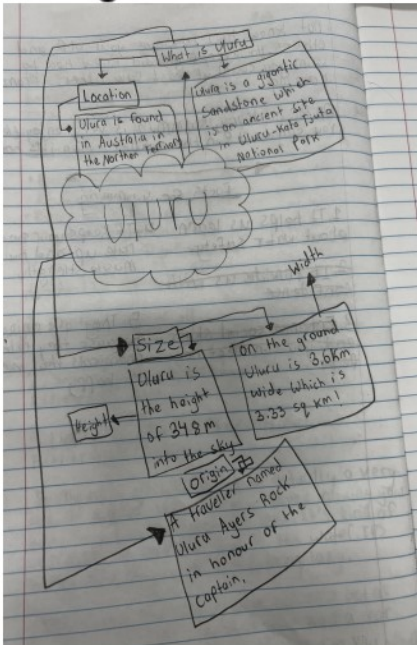 What is Uluru
Location
Uluru is found
in Australia in
the Northen Terriotory
Uluru is a gigontic
Sandstone which
is an ancient site
in Uluru-Kata Tjuta
National Park
Uluru
Width
Size
Uluru is
the height
of 348m
into the sky
Height
on the ground
Uluru is 3.6km
wide which is
3.33 sq km!
origin
A traveller named
Uluru Ayers Rock
in honour of the
Captain.